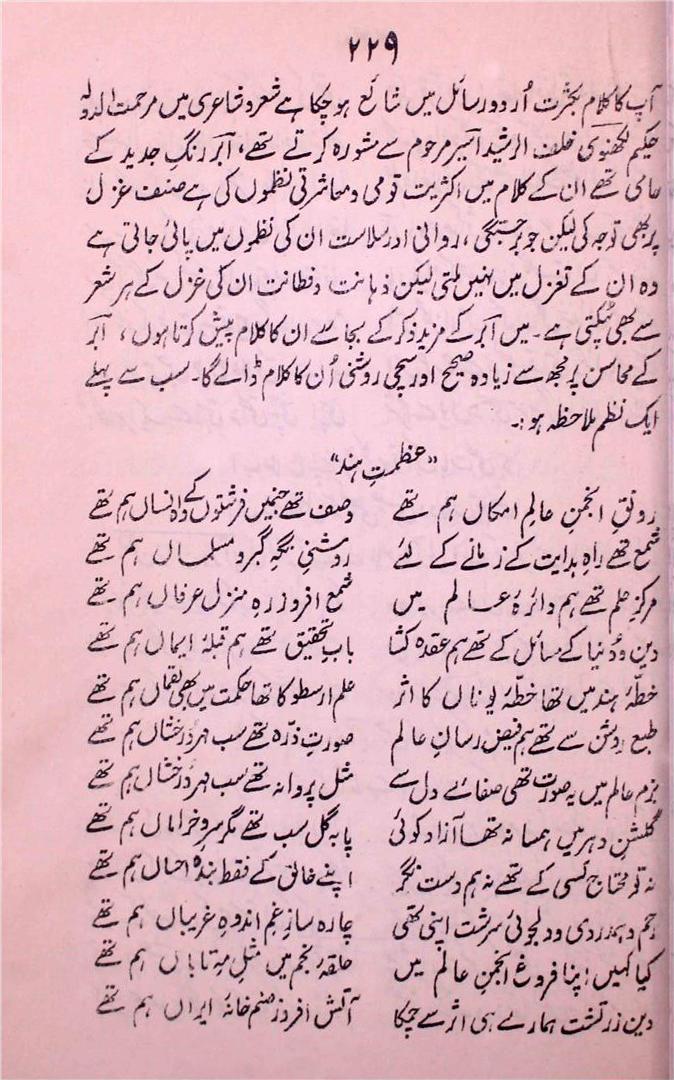 ۲۲۹
آپ کا کلام بکثرت اُردو رسائل میں شائع ہو چکا ہے شعر و شاعری میں مرحمت الدولہ
حکیم لکھنوی خلف الرشید اسیر مرحوم سے مشورہ کرتے تھے، ابر رنگِ جدید کے
حامی تھے ان کے کلام میں اکثریت قومی و معاشرتی نظموں کی ہے صنف غزل
پر بھی توجہ کی لیکن جو برجستگی، روانی اور سلاست ان کی نظموں میں پائی جاتی ہے
وہ ان کے تغزل میں نہیں ملتی لیکن ذہانت و فطانت ان کی غزل کے ہر شعر
سے بھی ٹپکتی ہے۔ میں ابر کے مزید ذکر کے بجائے ان کا کلام پیش کرتا ہوں، ابر
کے محاسن پر مجھ سے زیادہ صحیح اور سچی روشنی اُن کا کلام ڈالے گا۔ سب سے پہلے
ایک نظم ملاحظہ ہو:۔
"عظمتِ ہند"
رونقِ انجمنِ عالمِ امکاں ہم تھے وصف تھے جنمیں فرشتوں کے وہ انساں ہم تھے
شمع تھے راہِ ہدایت کے زمانے کے لئے روشنیِ نگہِ گبر و مسلماں ہم تھے
مرکزِ علم تھے ہم دائرۂ عالم میں شمع افروز رہِ منزل عرفاں ہم تھے
دین و دُنیا کے مسائل کے تھے ہم عقدہ کشا بابِ تحقیق تھے ہم قبلۂ ایماں ہم تھے
خطۂ ہند میں تھا خطۂ یوناں کا اثر علم ارسطو کا تھا حکمت میں بھی لقماں ہم تھے
طبع روشن سے تھے ہم فیض رسانِ عالم صورتِ ذرّہ تھے سب مہرِ درخشاں ہم تھے
بزم عالم میں یہ صورت تھی صفائے دل سے مثل پروانہ تھے سب مہرِ درخشاں ہم تھے
گلشنِ دہر میں ہمسا نہ تھا آزاد کوئی پا بہ گل سب تھے مگر سروِ خراماں ہم تھے
نہ تو محتاج کسی کے تھے نہ ہم دست نگر اپنے خالق کے فقط بندۂ احساں ہم تھے
رحم و ہمدردی و دلجوئی سرشت اپنی تھی چارہ سازِ غم اندوہِ غریباں ہم تھے
کیا کہیں اپنا فروغ انجمنِ عالم میں حلقۂ انجم میں مثلِ مہِ تاباں ہم تھے
دین زرتشت ہمارے ہی اثر سے چمکا آتش افروز صنم خانۂ ایراں ہم تھے